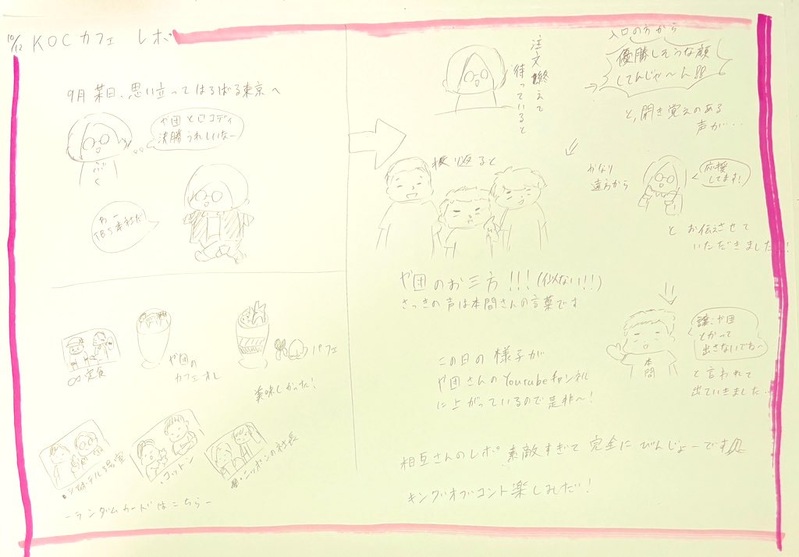 10/12 KOCカフェ レポ
9月某日、思い立ってはるばる東京へ
や団とロコディ
決勝うれしいな〜
わー
TBS本社だ!
定食
や団の
カフェオレ
パフェ
美味しかった!
コットン
ニッポンの社長
ーランダムカードはこちらー
注文終えて
待っていると
入口の方から
優勝しそうな顔
してんじゃ〜ん!!
と、聞き覚えのある
声が…
振り返ると
かなり
遠くから
応援
してます!
と お伝えさせて
いただきました!!
や団のお三方!!!(似ない!!)
さっきの声は本間さんの言葉です
この日の様子が
や団さんのYoutubeチャンネル
に上がっているので是非〜!
や団
とかって
出さないでね〜
本間
と言われて
出ていきました…
相互さんのレポ 素敵すぎて完全にびんじょーです
キングオブコント楽しみだ!